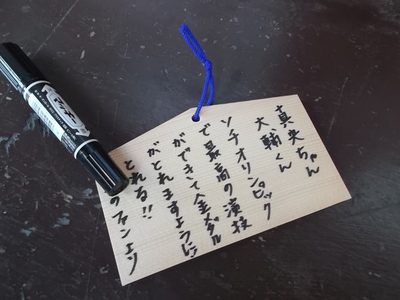 真央ちゃん
大輔くん
ソチオリンピック
で最高の演技
ができて金メダル
がとれますように!!
とれる!!
のファンより
マッキー